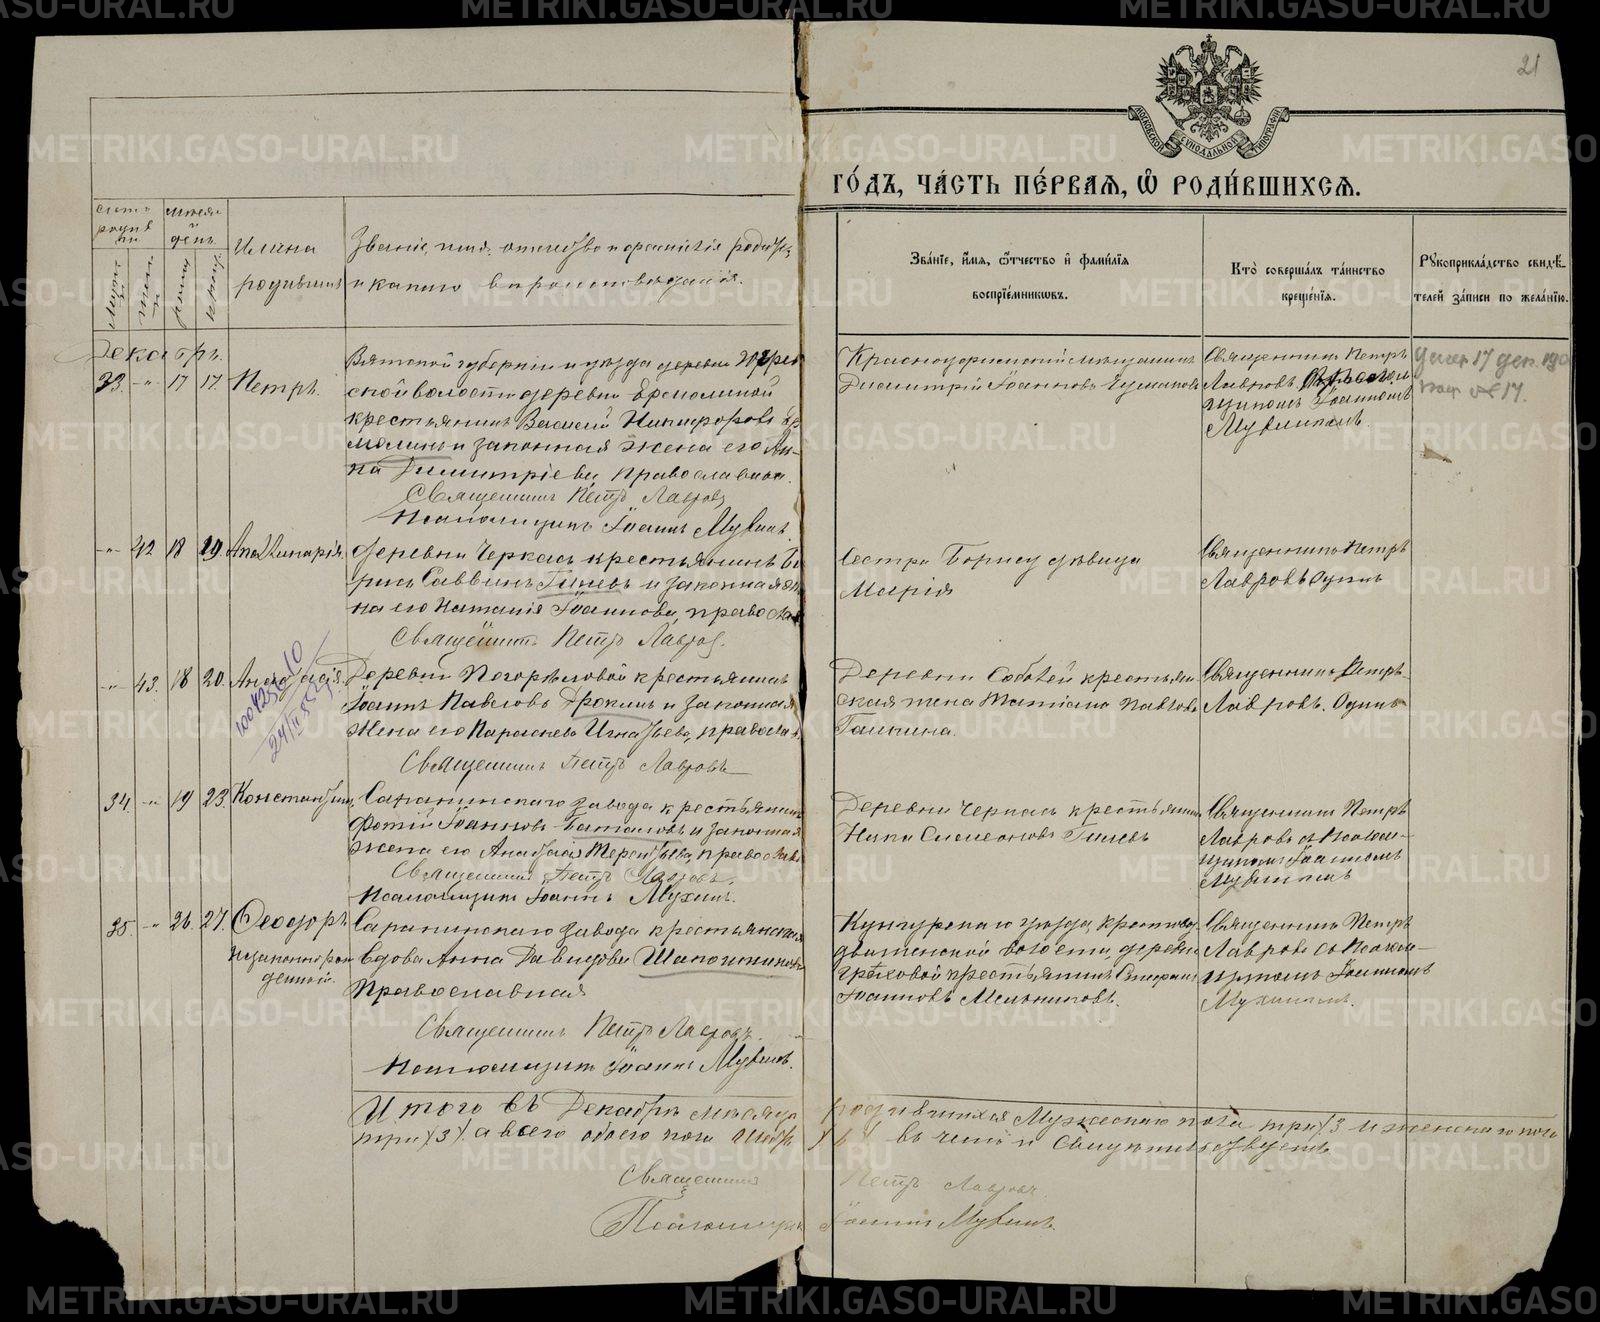 21
МОСКОВСКОЙ СѴНОДАЛЬНОЙ ТИПОГРАФІИ
ГО́ДЪ, ЧА́СТЬ ПЕ́РВАЯ, Ѽ РОДИ́ВШИХСЯ.
Имена родившихся
Званіе, имя, отчество и фамилія родит.
и какого вѣроисповѣданія.
Зва́нїе, и҆́мя, ѻ҆́тчество и҆ фами́лїя
воспрїе́мникѡвъ.
Кто̀ соверша́лъ та́инство
креще́нїя.
Рꙋкоприкла́дство свидѣ́-
телей за́писи по жела́нїю.
Декабрь.
33. -"- 17 17. Петръ.
Вятской губерніи и уѣзда
ской волости деревни Ермолиной
крестьянинъ Василій Никифоровъ Ер
молинъ и законная жена его Ан-
на Димитріева, православные.
Священникъ Петръ Лавровъ
Псаломщикъ Іоаннъ Мухинъ.
Красноуфимскій мѣщанинъ
Димитрій Іоанновъ
Священникъ Петръ
Лавровъ
щикомъ Іоанномъ
Мухинымъ.
17 дек.
№ 17.
-"- 42 18 19. Аполлинарія.
Деревни Черкасъ крестьянинъ Бо
рисъ Саввинъ Гилевъ и законная же
на его Наталія Іоаннова, правосла
Священникъ Петръ Лавров.
Сестра Бориса дѣвица
Марія
Священникъ Петръ
Лавровъ Одинъ
-"- 43. 18 20. Анастасія.
Деревни Погорѣловой крестьянинъ
Іоаннъ Павловъ Дрокинъ и законная
жена его Параскева Игнатьева, правосла
Священникъ Петръ Лавровъ
Деревни Собѣей крестьян
ская жена Татіана Павлова
Галкина.
Священникъ Петръ
Лавровъ. Одинъ
34. -"- 19 23. Константинъ.
Саранинскаго завода крестьянинъ
Фотій Іоанновъ Баталовъ и законная
жена его Анастасія Терентьева, правосла
Священникъ Петръ Лавровъ.
Псаломщикъ Іоаннъ Мухинъ.
Деревни Черкасъ крестьянин
Ника Симеоновъ Гилевъ
Священникъ Петръ
Лавровъ съ Псалом-
щикомъ Іоанномъ
Мухинымъ
35. -"- 26. 27. Ѳеодоръ
незаконнорож
денный.
Саранинскаго завода крестьянская
вдова Анна Давидова Шапошникова
Православная
Священникъ Петръ Лавровъ.
Псаломщикъ Іоаннъ Мухинъ.
Кунгурскаго уѣзда, Крестовоз
движенской волости, деревни
Грѣховой крестьянинъ Стефанъ
Іоанновъ Мельниковъ.
Священникъ Петръ
Лавровъ съ Псалом-
щикомъ Іоанномъ
Мухинымъ.
Итого въ Декабрѣ мѣсяцѣ родившихся Мужескаго пола три /3/ и женскаго пола
три /3/. а всего обоего пола
Священникъ Петръ Лавровъ
Псаломщикъ Іоаннъ Мухинъ.
METRIKI.GASO-URAL.RU